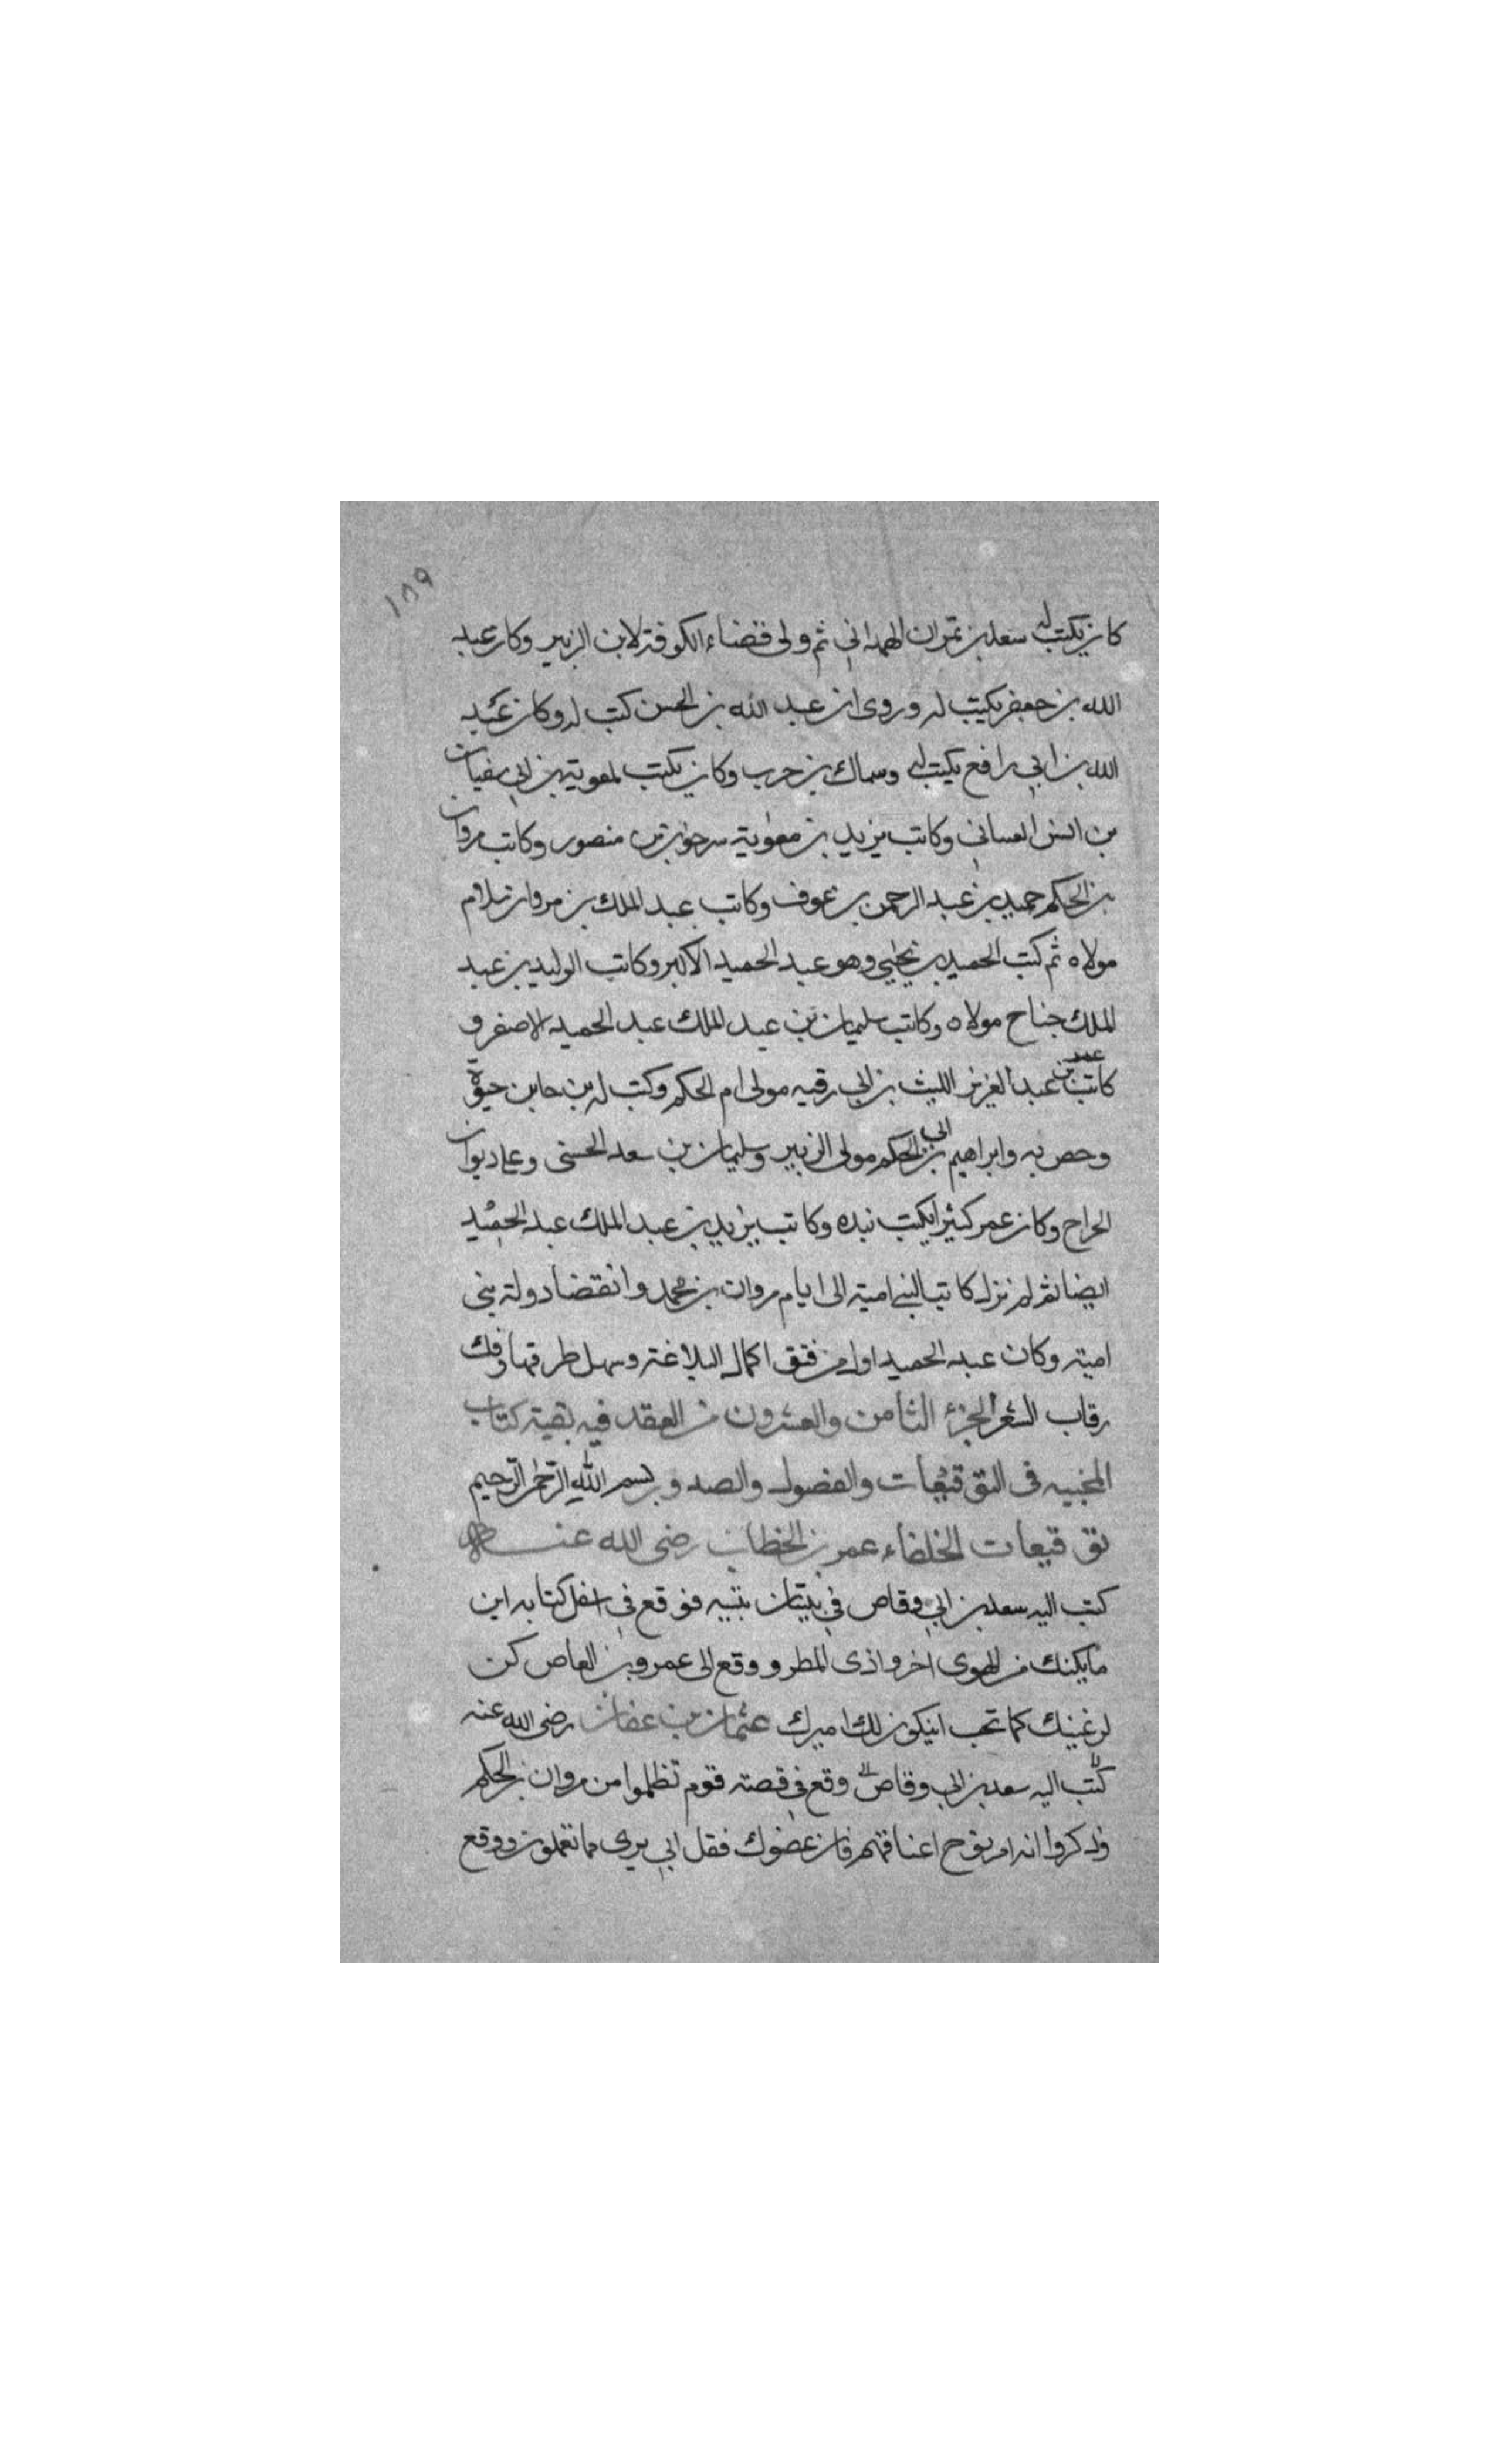 ١٨٩
كان يكتب له سعد بن نمران الهمداني ثم ولى قضاء الكوفة لابن الزبير وكان عبد
الله بن جعفر يكتب له وروى ان عبد الله بن الحسن كتب له وكان عبد
الله بن ابي رافع يكتب له وسماك بن حرب وكان يكتب لمعوية بن ابي سفيان
بن انس الغساني وكاتب يزيد بن معوية سرجون بن منصور وكاتب مروان
بن الحكم حميد بن عبد الرحمن بن عوف وكاتب عبد الملك بن مروان سلام
مولاه ثم كتب الحميد بن يحيى وهو عبد الحميد الاكبر وكاتب الوليد بن عبد
الملك جناح مولاه وكاتب سليمان بن عبد الملك عبد الحميد الاصغر و
كاتب عمر بن عبد العزيز الليث بن ابي رقيه مولى ام الحكم وكتب له بن حابن حيوة
وحص به وابراهيم بن ابي الحكم مولى الزبير وسليمان بن سعد الحسنى وعلى ديوان
الحراج وكان عمر كثيرا يكتب بيده وكاتب يزيد بن عبد الملك عبد الحميد
ايضا ثم لم نزل كاتبا لبني امية الى ايام مروان بن محمد وانقضا دولة بني
امية وكان عبد الحميد اول من فتق اكمال البلاغة وسهل طرقها وفك
رقاب الشعر الجزء الثامن والعشرون من العقد فيه بقية كتاب
المجنبيه في التوقيعات والفصول والصدور بسم الله الرحمن الرحيم
توقيعات الخلفاء عمر بن الخطاب رضى الله عنه
كتب اليه سعد بن ابي وقاص في بنيان بنيه فوقع في اسفل كتابه ابن
ما يكنك من الهوى اخر واذى المطر ووقع الى عمرو بن العاص كن
لرعيتك كما تحب ان يكون لك اميرك عثمان بن عفان رضى الله عنه
كتب اليه سعد بن ابي وقاص وقع في قصة قوم تظلموا من مروان بن الحكم
وذكروا انه امر بوج اعناقهم فان عصوك فقل اني بري مما تعملون ووقع